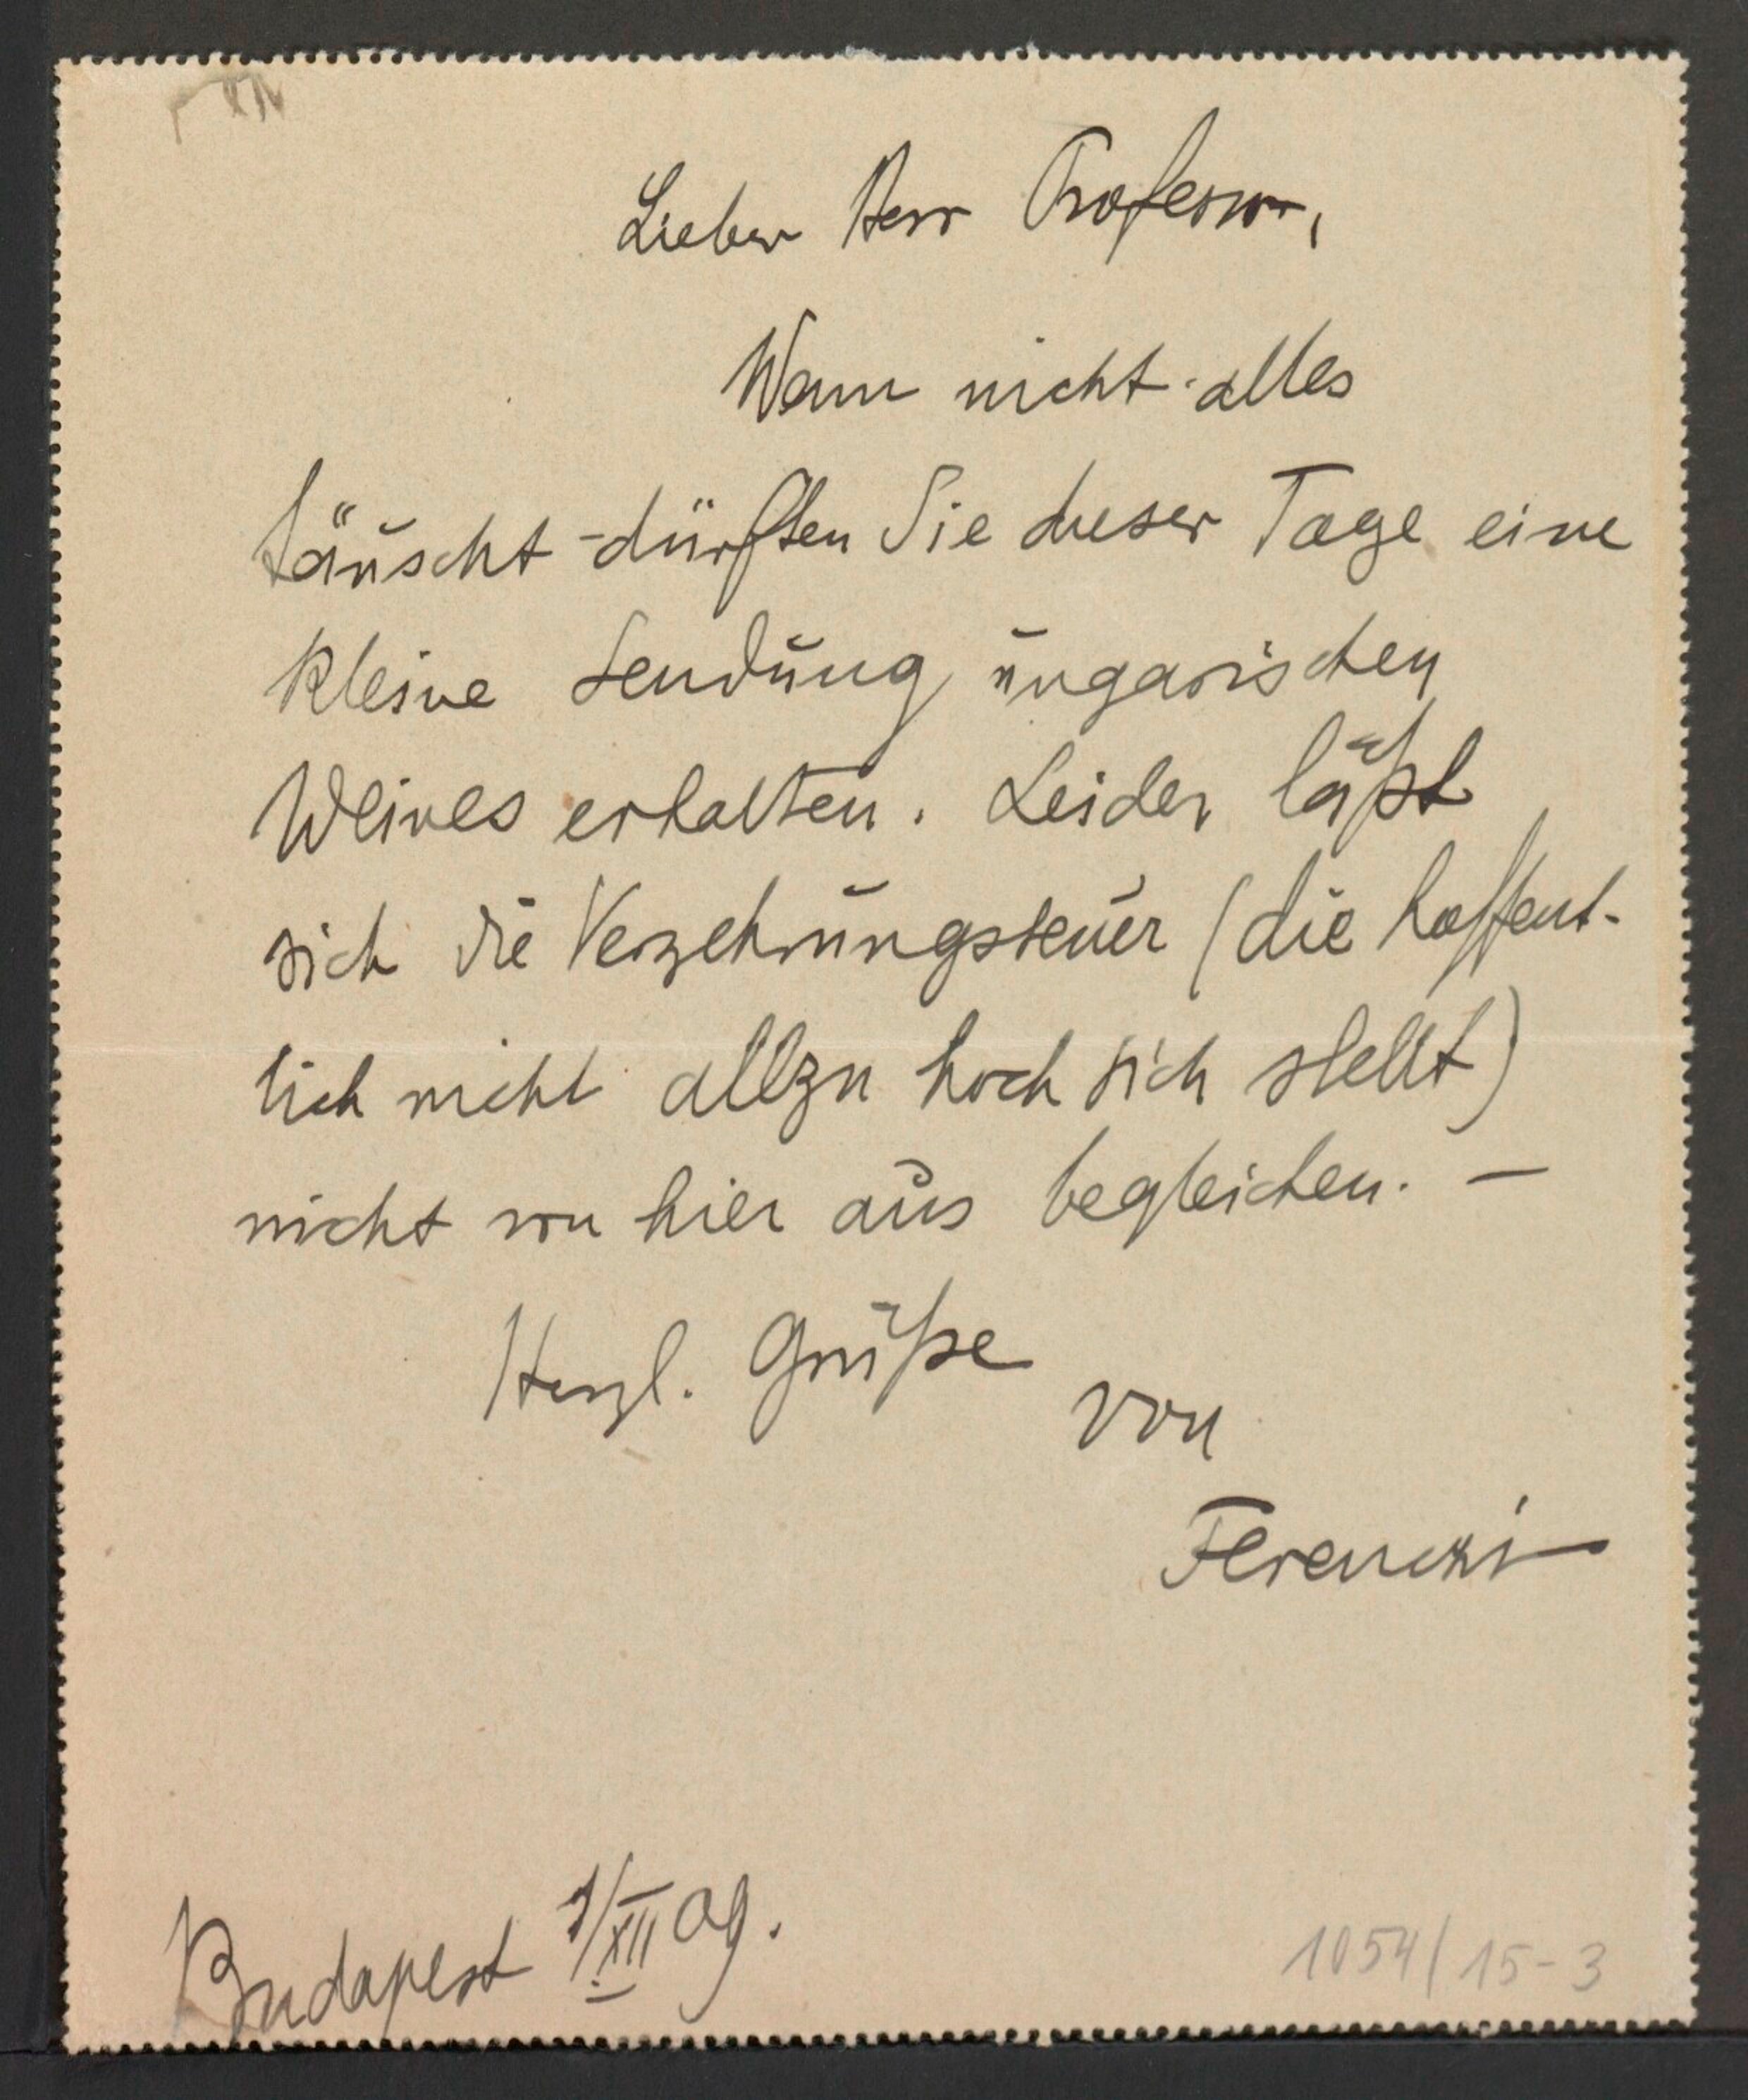 Lieber Herr Professor,
Wenn nicht alles
täuscht - dürften Sie dieser Tage eine
kleine Sendung ungarischen
Weines erhalten. Leider läßt
sich die Verzehrungsteuer (die hoffent-
lich nicht allzu hoch sich stellt)
nicht von hier aus begleichen. —
Herzl. Grüße
von
Ferenczi
Budapest 7/XII 09.
1054/15-3